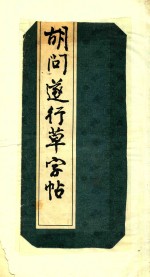 胡问遂行草字帖